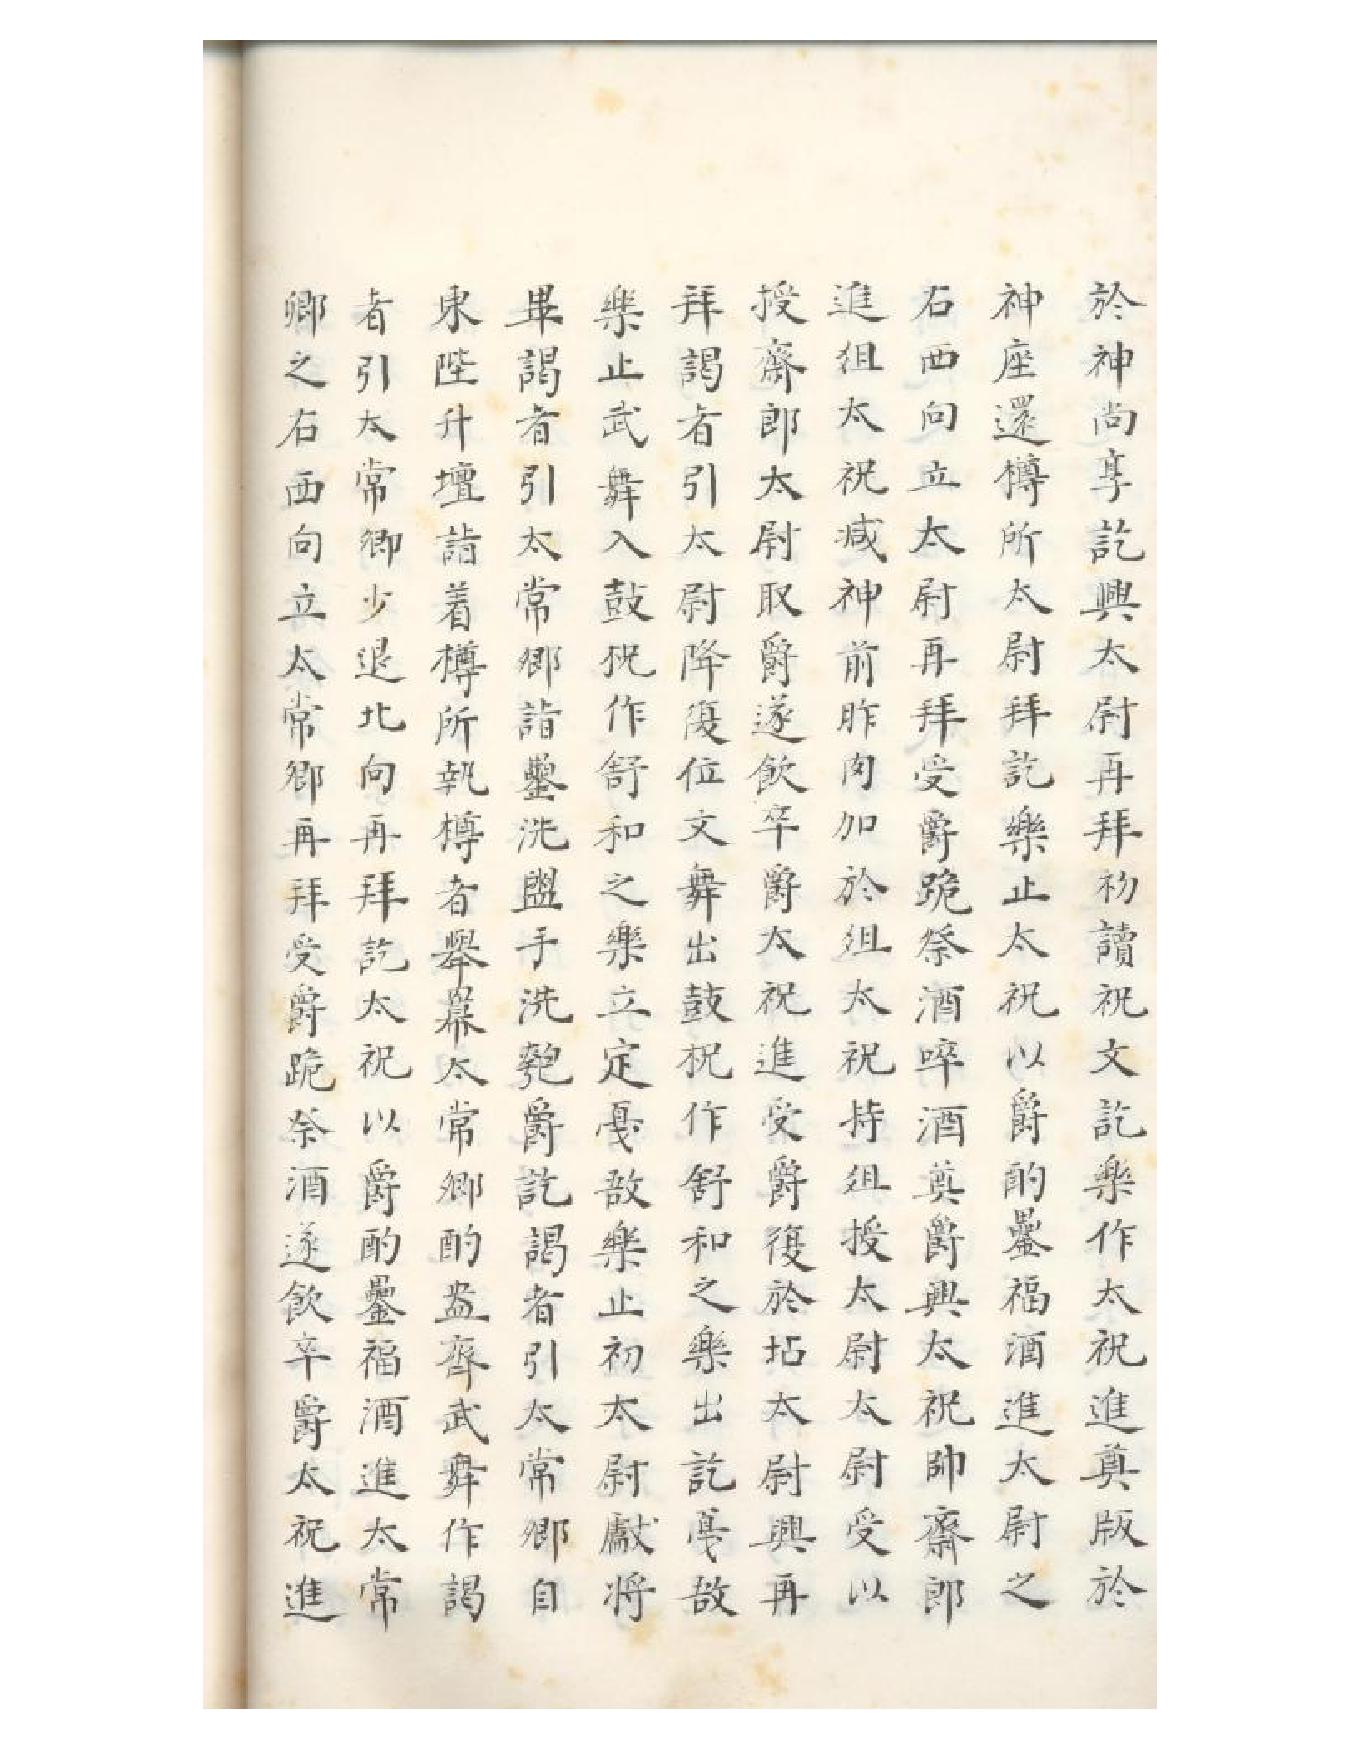 於神尚享訖興太尉再拜初讀祝文訖樂作太祝進奠版於
神座還樽所太尉拜訖樂止太祝以爵酌罍福酒進太尉之
右西向立太尉再拜受爵跪祭酒啐酒奠爵興太祝帥齋郎
進俎太祝减神前胙肉加於俎太祝持俎授太尉太尉受以
授齋郎太尉取爵遂飲卒爵太祝進受爵復於坫太尉興再
拜謁者引太尉降復位文舞出鼓柷作舒和之樂出訖戞敔
樂止武舞入鼓柷作舒和之樂立定戞敔樂止初太尉獻将
畢謁者引太常卿詣罍洗盥手洗匏爵訖謁者引太常卿自
東陛升壇詣着樽所執樽者舉羃太常卿酌盎齊武舞作謁
者引太常卿少退北向再拜訖太祝以爵酌罍福酒進太常
卿之右西向立太常卿再拜受爵跪祭酒遂飲卒爵太祝進